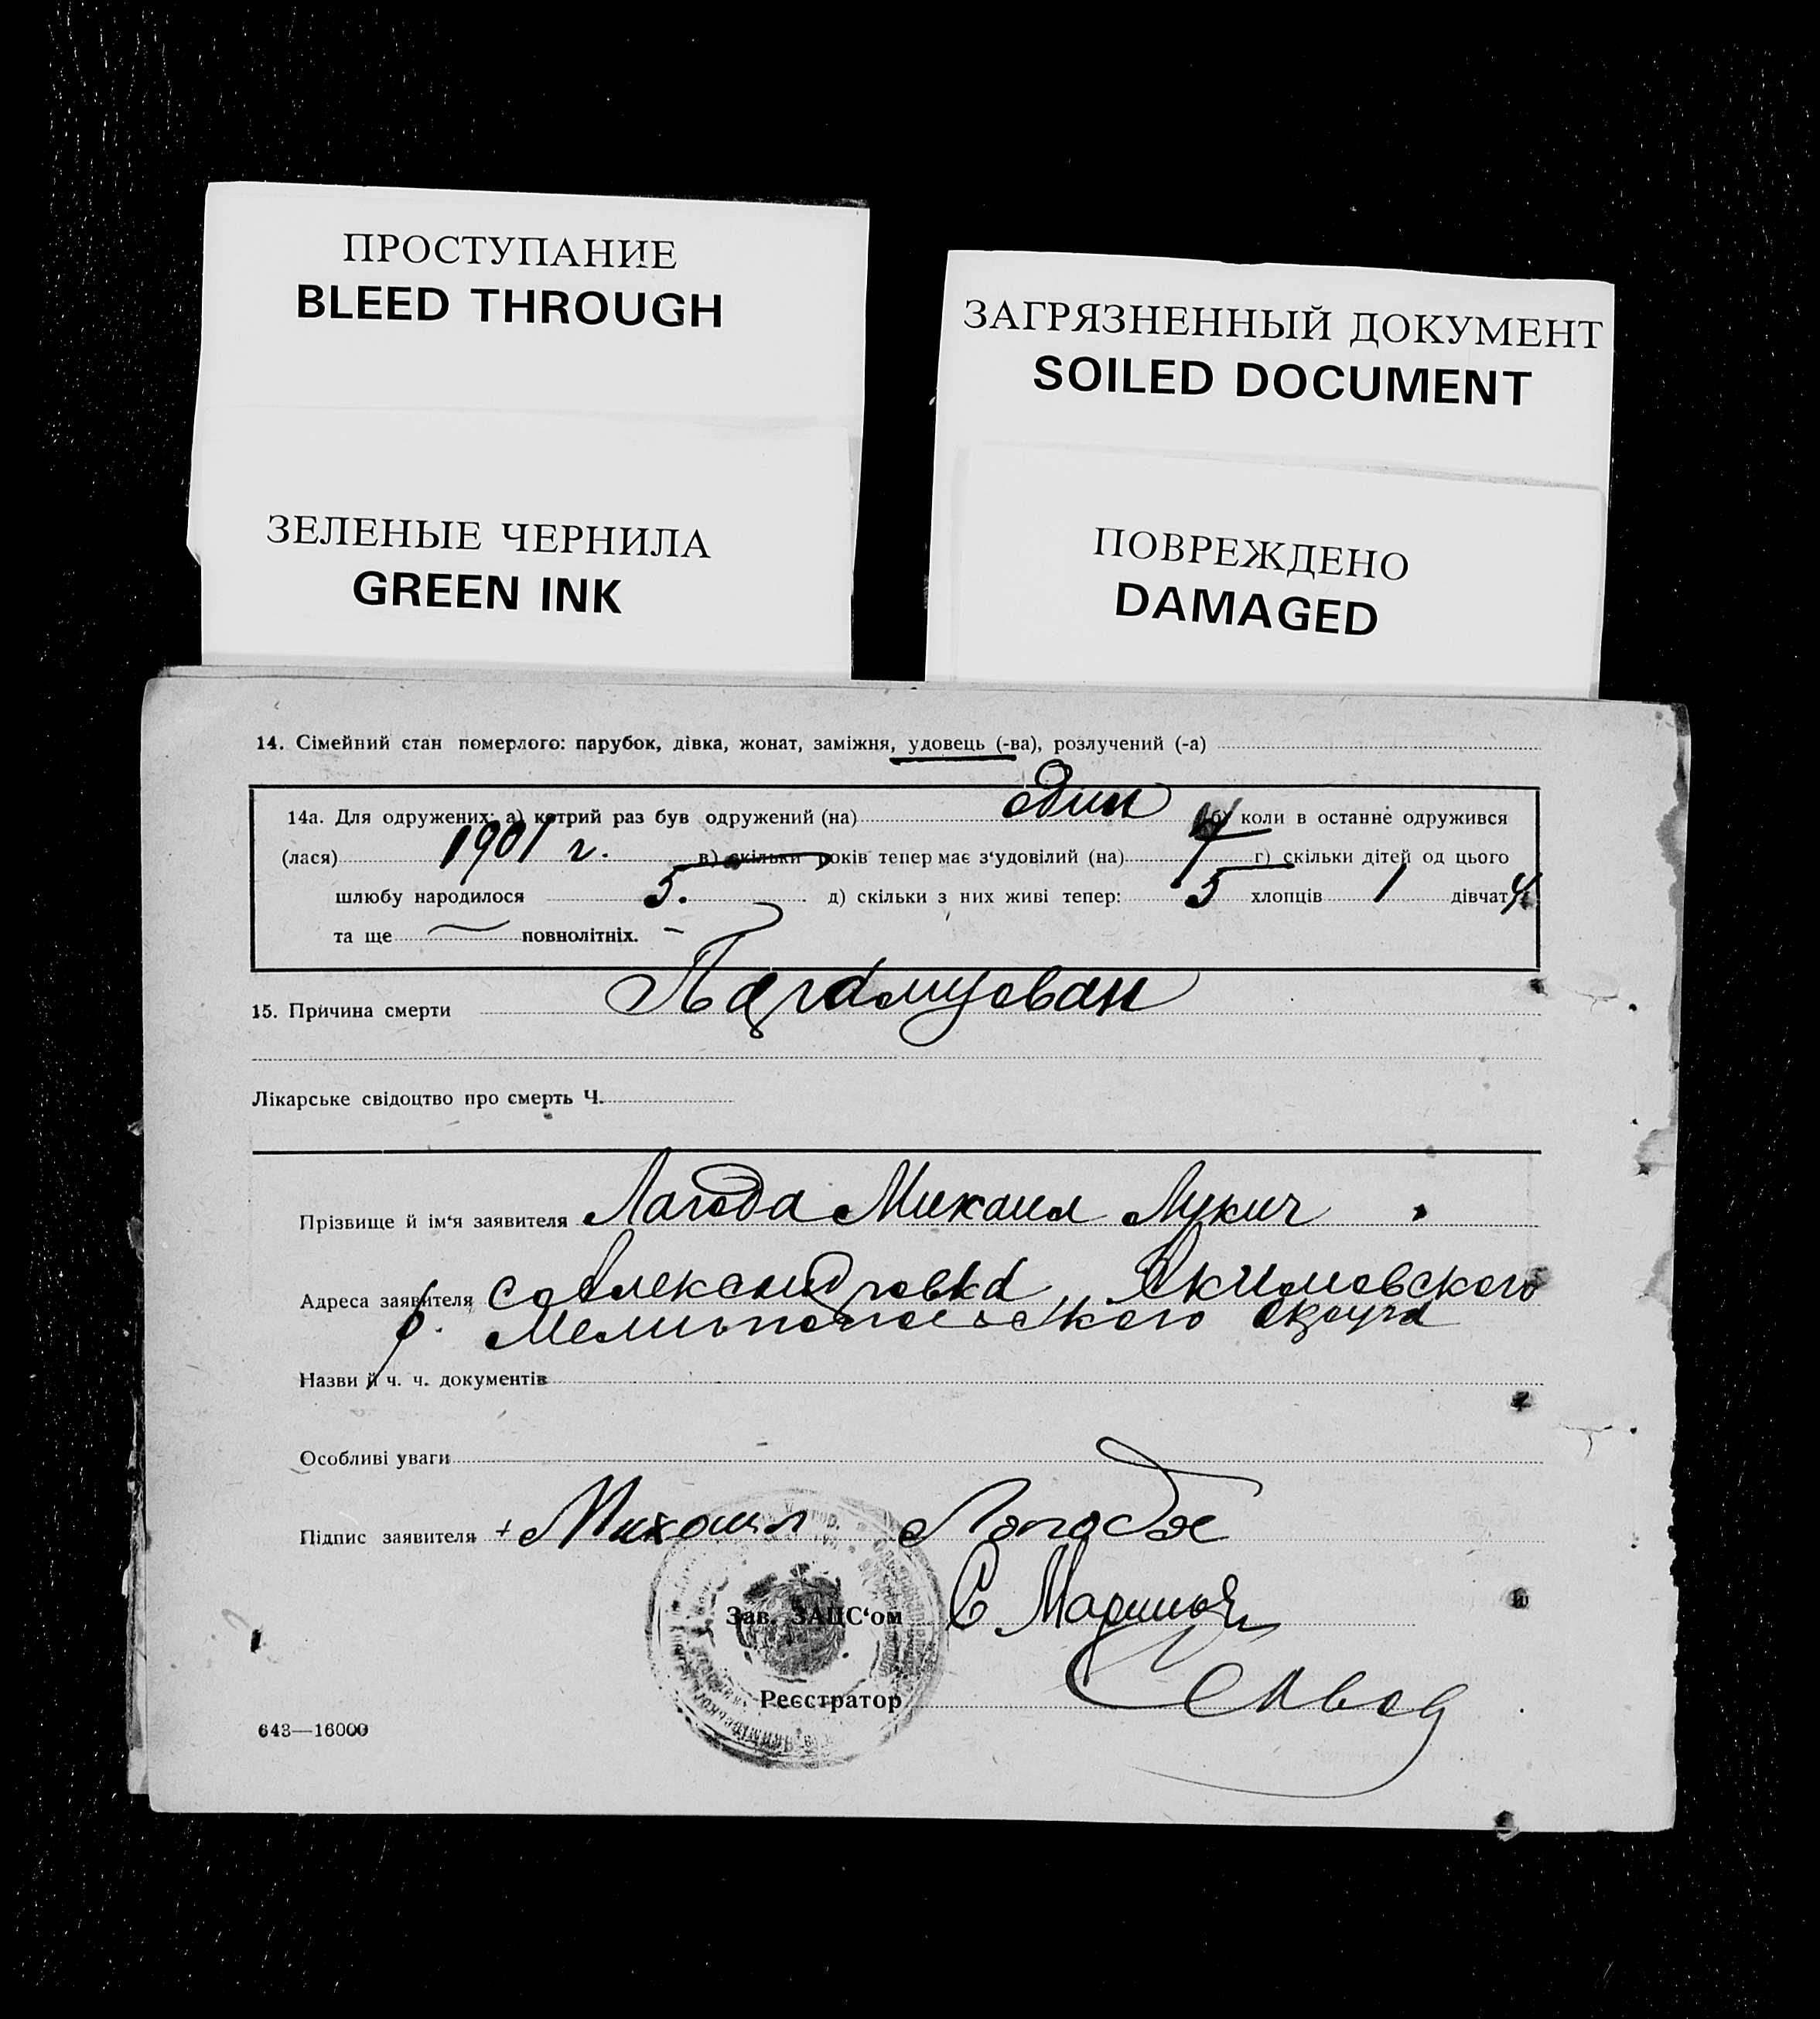 ПРОСТУПАНИЕ
BLEED THROUGH
ЗАГРЯЗНЕННЫЙ ДОКУМЕНТ
SOILED DOCUMENT
ЗЕЛЕНЫЕ ЧЕРНИЛА
GREEN INK
ПОВРЕЖДЕНО
DAMAGED
14. Сімейний стан померлого: парубок, дівка, жонат, заміжня, удовець (-ва), розлучений (-а)
14а. Для одружених: а) котрий раз був одружений (на) один б) коли в останнє одружився
(лася) 1901 г. в) скільки років тепер має з‘удовілий (на) г) скільки дітей од цього
шлюбу народилося 5. д) скільки з них живі тепер: 5 хлопців 1 дівчат 4
та ще повнолітніх.
15. Причина смерти
Лікарське свідоцтво про смерть Ч.
Прізвище й ім‘я заявителя Лагода Михаил Лукич
Адреса заявителя с Александровка, Якимовского
р. Мелитопольского округа
Назви й ч. ч. документів
Особливі уваги
Підпис заявителя + Михаил Лагода
Зав. ЗАЦС‘ом С
Реєстратор
643—16000